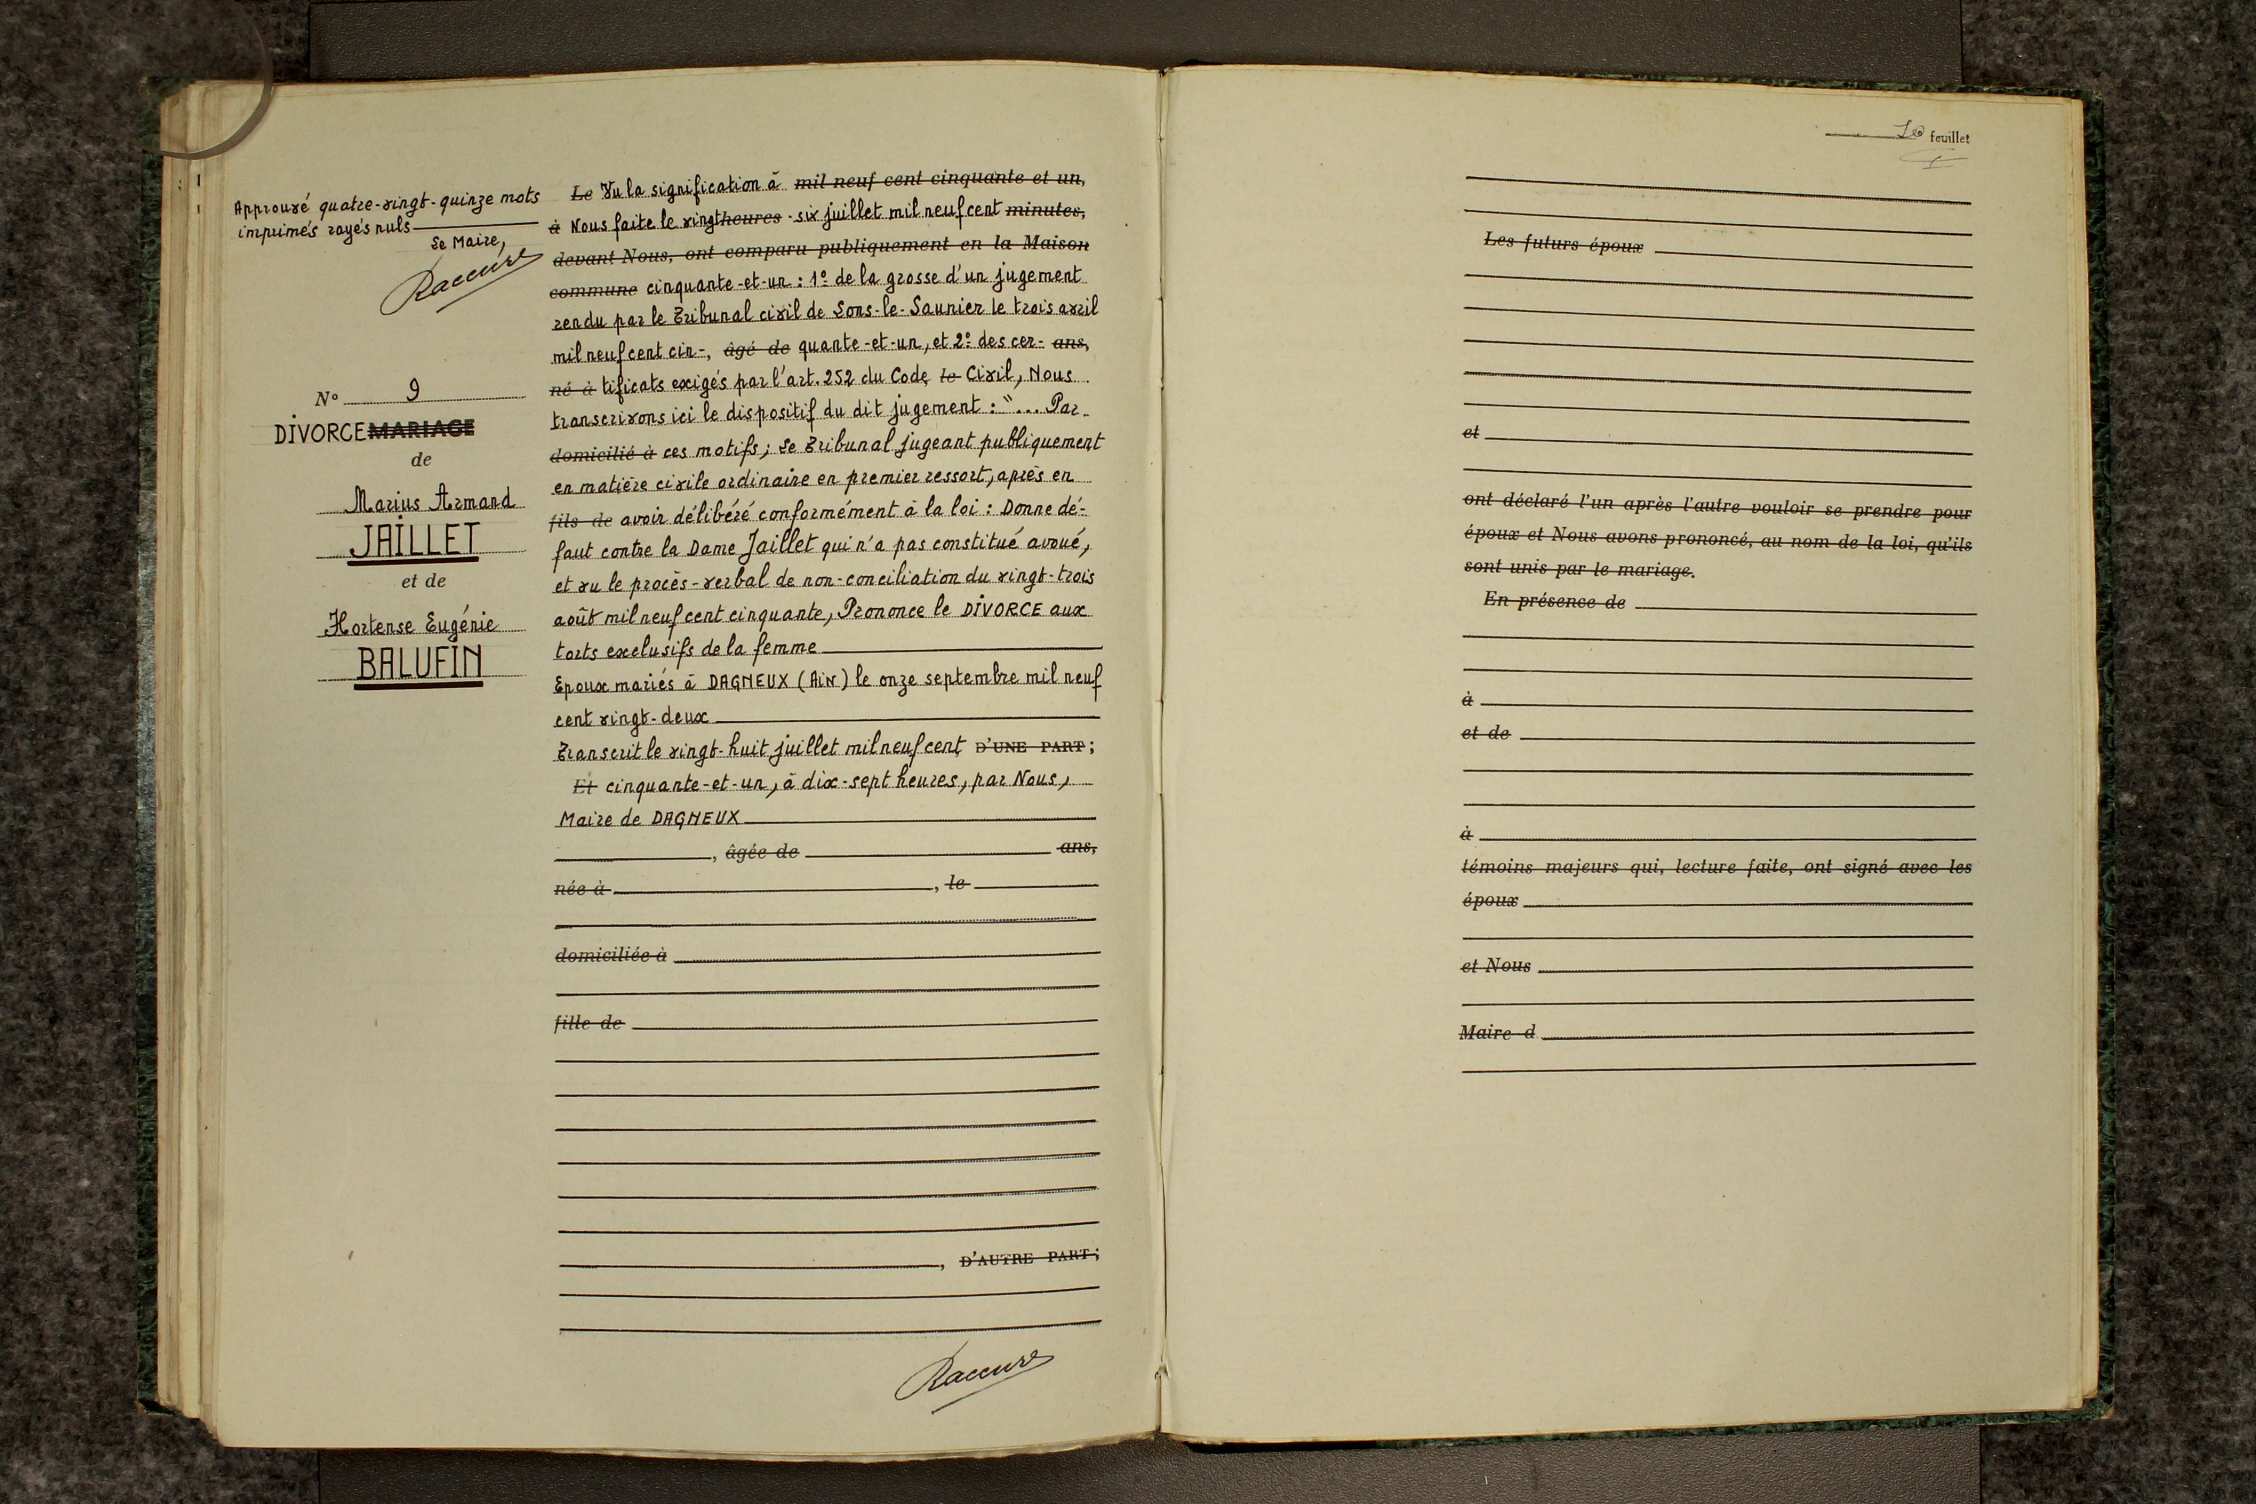 Approuvé quatre-vingt-quinze mots
imprimés rayés nuls
Le Maire,
Raccurt
N° 9
DIVORCE MARIAGE
de
Marius Armand
JAILLET
et de
Hortense Eugénie
BALUFIN
Le Vu la signification à mil neuf cent cinquante et un,
à Nous faite le vingt heures -six juillet mil neuf cent minutes,
devant Nous, ont comparu publiquement en la Maison
commune cinquante-et-un : 1° de la grosse d'un jugement
rendu par le Tribunal civil de Lons-le-Saunier le trois avril
mil neuf cent cin-, âgé de quante-et-un, et 2° des cer- ans,
né à tificats exigés par l'art. 252 du Code le Civil, Nous
transcrivons ici le dispositif du dit jugement : "... Par
domicilié à ces motifs ; Le Tribunal jugeant publiquement
en matière civile ordinaire en premier ressort, après en
fils de avoir délibéré conformément à la loi : Donne dé-
faut contre la Dame Jaillet qui n'a pas constitué avoué,
et vu le procès-verbal de non-conciliation du vingt-trois
août mil neuf cent cinquante, Prononce le DIVORCE aux
torts exclusifs de la femme
Epoux mariés à DAGNEUX (AIN) le onze septembre mil neuf
cent vingt-deux
Transcrit le vingt-huit juillet mil neuf cent D'UNE PART ;
Et cinquante-et-un, à dix-sept heures, par Nous,
Maire de DAGNEUX
, âgée de ans,
née à , le
domiciliée à
fille de
, D'AUTRE PART ;
Raccurt
feuillet
Les futurs époux
et
ont déclaré l'un après l'autre vouloir se prendre pour
époux et Nous avons prononcé, au nom de la loi, qu'ils
sont unis par le mariage.
En présence de
à
et de
à
témoins majeurs qui, lecture faite, ont signé avec les
époux
et Nous
Maire d